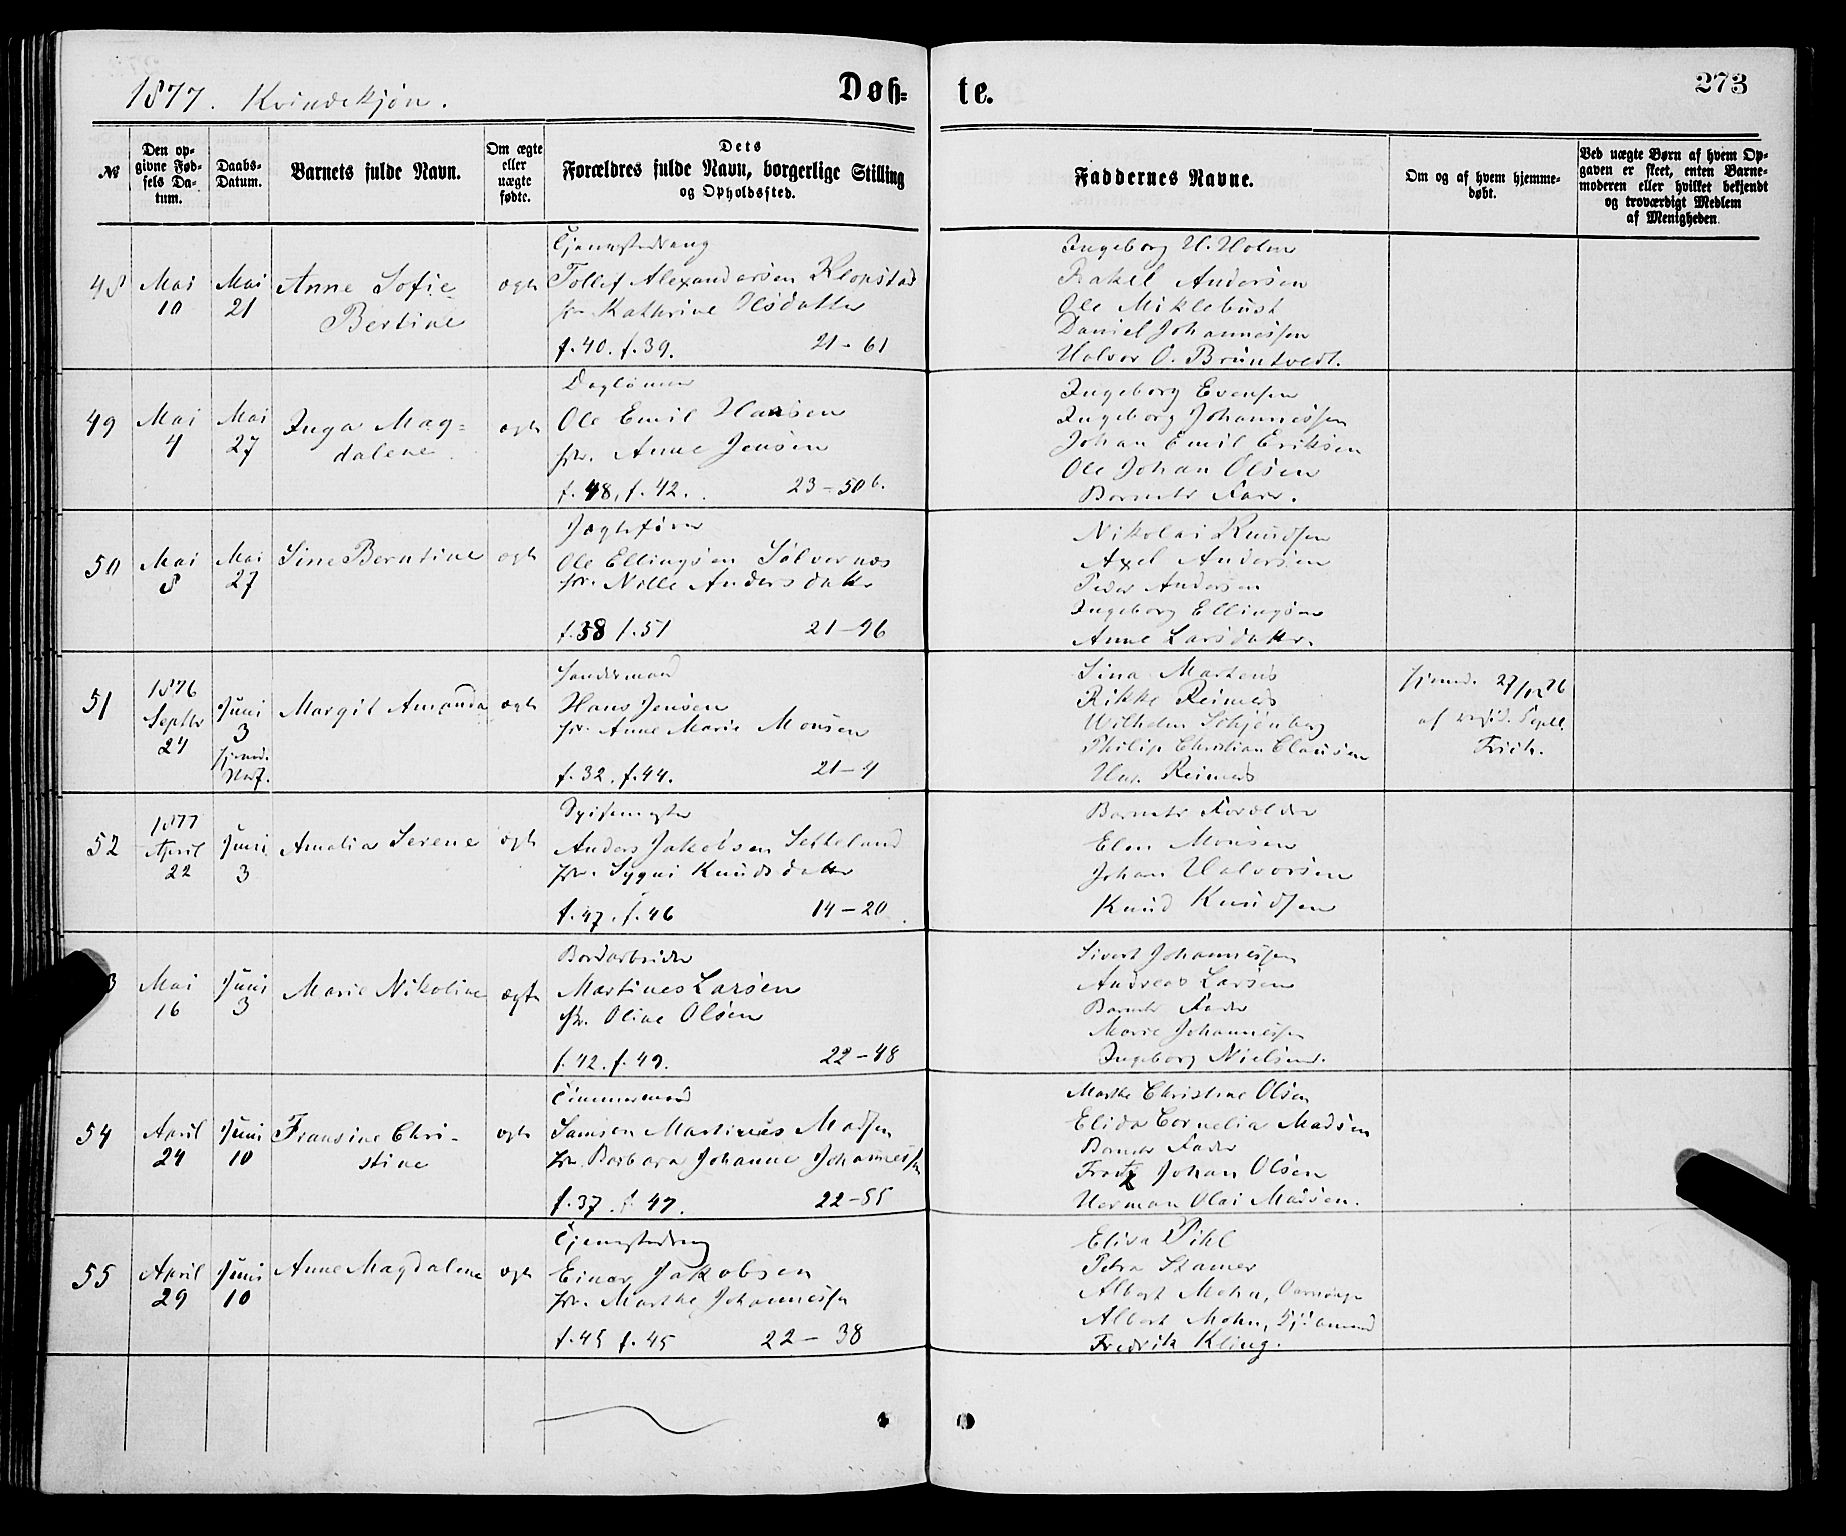 1877. Kvindekjøn.
Døb-
te.
273
№
Den op-
givne Fød-
sels Da-
tum.
Daabs-
Datum.
Barnets fulde Navn.
Om ægte
eller
uægte
fødte.
Dets
Forældres fulde Navn, borgerlige Stilling
og Opholdssted.
Faddernes Navne.
Om og af hvem hjemme-
døbt.
Ved uægte Børn af hvem Op-
gaven er skeet, enten Barne-
moderen eller hvilket bekjendt
og troværdigt Medlem
af Menigheden.
48
Mai
10
Mai
21
Anne Sofie
Bertine
ægte
Tjenestedreng
Tollef Alexandersen Klopstad
Kathrine Olsdatter
f. 40. f. 39. 21 - 61
Ingeborg H. Holm
Rakel Andersen
Ole Miklebust
Daniel Johannessen
Halvor O. Bruntvedt.
49
Mai
4
Mai
27
Inga Mag-
dalene
ægte
Ole Emil Hansen
Anne Jensen
f. 48, f. 42. 23 - 50 b.
Ingeborg Evensen
Ingeborg Johannessen
Johan Emil Eriksen
Ole Johan Olsen
Barnets Fader.
50
Mai
8
Mai
27
Sine Berntine
ægte
Jagtefører
Ole Ellingsen Sølvernes
Nille Andersdatter
f. 38 f. 51 21 - 96
Nikolai Knudsen
Axel Andersen
Peder Andersen
Ingeborg Ellingsen
Anne Larsdatter.
51
1876
Septbr
24
Juni
3
Margit Amanda
ægte
Handelsmand
Hans Jensen
Anne Marie Monsen
f. 32. f. 44. 21 - 4
Sina Martens
Rikke Reimers
Wilhelm Schjønberg
Philip Christian Clausen
Reimers
27/12 76
af resid. Capell.
Frich.
52
1877
April
22
Juni
3
Amalia Serene
ægte
Anders Jakobsen Setteland
Sygni Knudsdatter
f. 47. f. 46 14 - 20
Barnets Forældre
Elen Monsen
Johan Halvorsen
Knud Knudsen
3
Mai
16
Juni
3
Marie Nikoline
ægte
Bordarbeider
Martines Larsen
Oline Olsen
f. 42. f. 49. 22 - 48
Sivert Johannessen
Andreas Larsen
Barnets Fader
Marie Johannessen
Ingeborg Nielsen.
54
April
24
Juni
10
Fransine Chri-
stine
ægte
Timmermand
Samson Martinus Madsen
Barbara Johanne Johannessen
f. 37. f. 47. 22 - 55
Marthe Christine Olsen
Elida Cornelia Madsen
Barnets Fader
Fratz Johan Olsen
Herman Olai Madsen.
55
April
29
Juni
10
Anne Magdalene
ægte
Tjenestedreng
Einar Jakobsen
Marthe Johannessen
f. 45 f. 45 22 - 38
Elisa Pihl
Petra Stamer
Albert Mohn,
Albert Mohn,
Fredrik Kling.